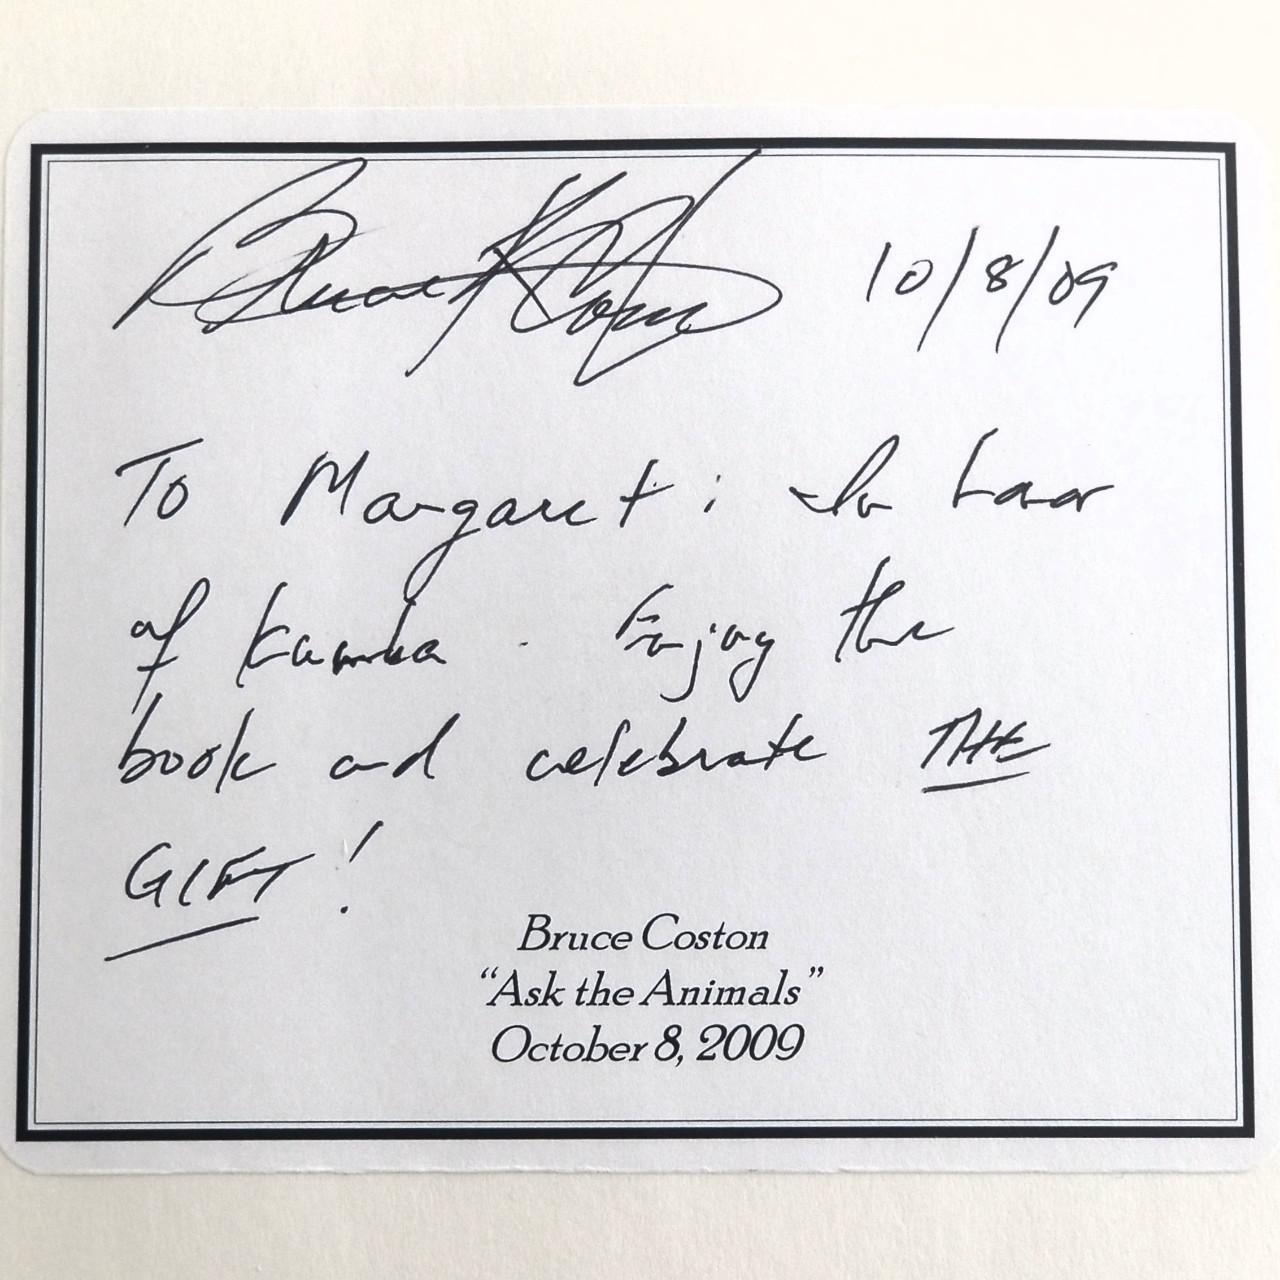 Bruce Coston 10/8/09
To Margaret: In honor
of . Enjoy the
book and celebrate THE
GIFT!
Bruce Coston
“Ask the Animals”
October 8, 2009